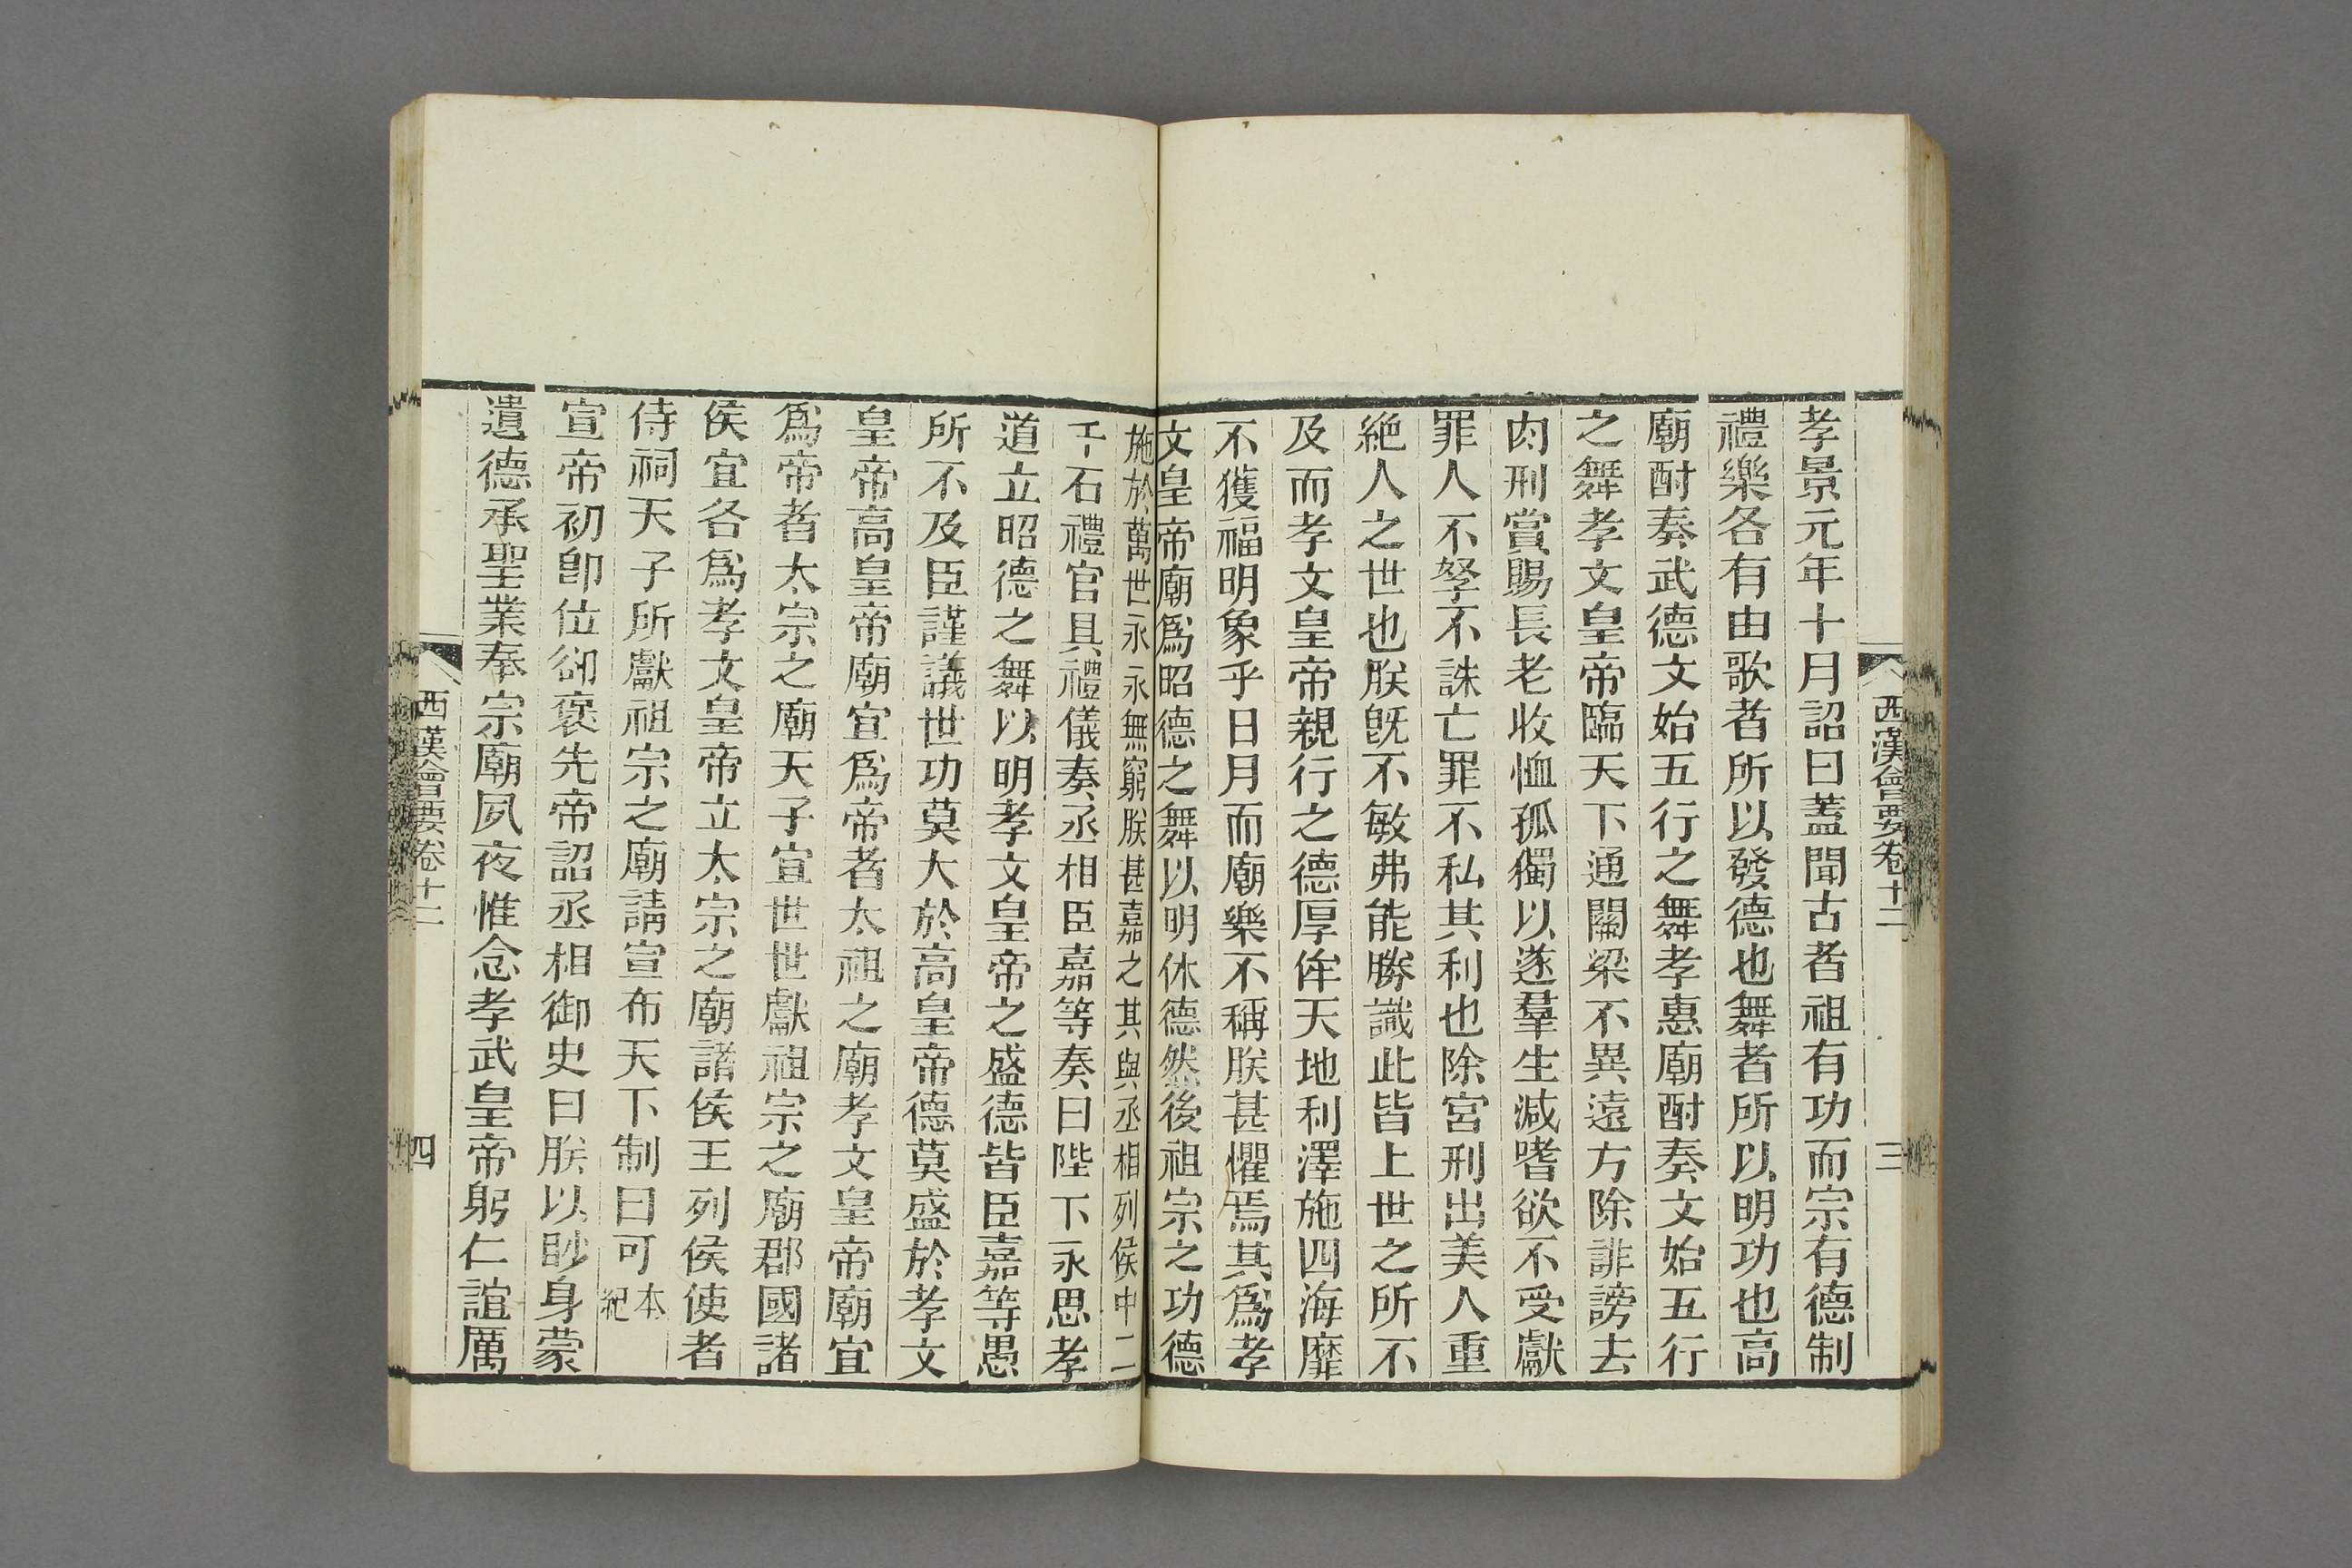 西漢會要卷十二
三
孝景元年十月詔曰蓋聞古者祖有功而宗有德制
禮樂各有由歌者所以發德也舞者所以明功也高
廟酎奏武德文始五行之舞孝惠廟酎奏文始五行
之舞孝文皇帝臨天下通關梁不異遠方除誹謗去
肉刑賞賜長老收恤孤獨以遂羣生減嗜欲不受獻
罪人不帑不誅亡罪不私其利也除宮刑出美人重
絕人之世也朕旣不敏弗能勝識此皆上世之所不
及而孝文皇帝親行之德厚侔天地利澤施四海靡
不獲福明象乎日月而廟樂不稱朕甚懼焉其爲孝
文皇帝廟爲昭德之舞以明休德然後祖宗之功德
施於萬世永永無窮朕甚嘉之其與丞相列侯中二
千石禮官具禮儀奏丞相臣嘉等奏曰陛下永思孝
道立昭德之舞以明孝文皇帝之盛德皆臣嘉等愚
所不及臣謹議世功莫大於高皇帝德莫盛於孝文
皇帝高皇帝廟宜爲帝者太祖之廟孝文皇帝廟宜
爲帝者太宗之廟天子宜世世獻祖宗之廟郡國諸
侯宜各爲孝文皇帝立太宗之廟諸侯王列侯使者
侍祠天子所獻祖宗之廟請宣布天下制曰可本紀
宣帝初卽位欲襃先帝詔丞相御史曰朕以眇身蒙
遺德承聖業奉宗廟夙夜惟念孝武皇帝躬仁誼厲
西漢會要卷十二
四